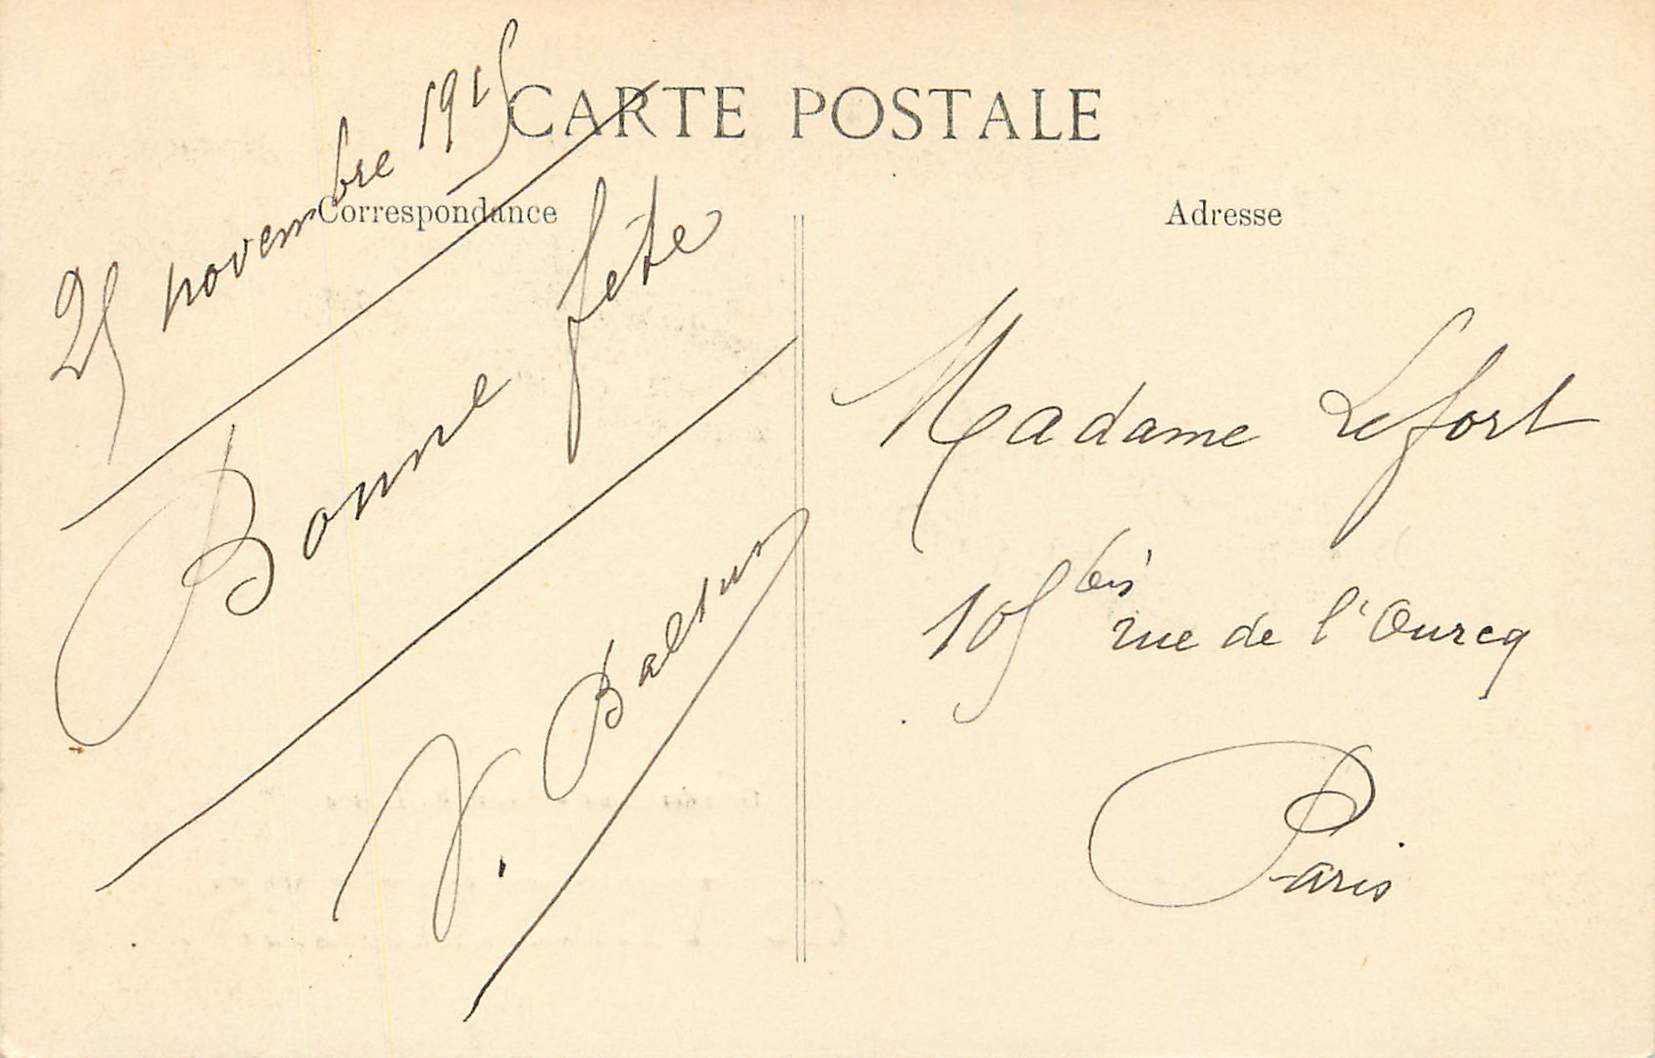 CARTE POSTALE
Correspondance
Adresse
25 novembre 1915
Bonne fête
V.
Madame Lefort
105 bis rue de l'Ourcq
Paris